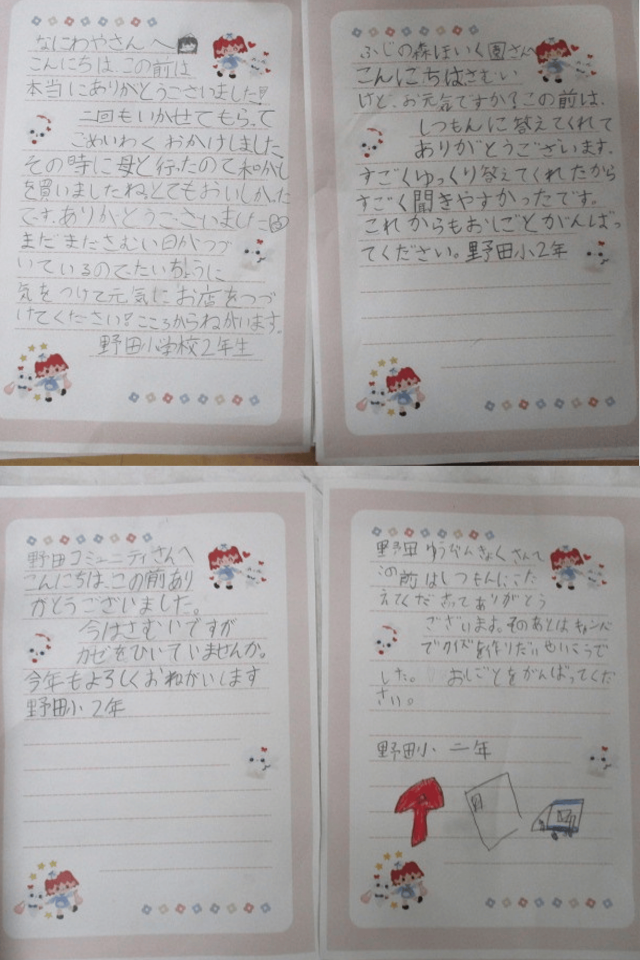 なにわやさんへ
こんにちは、この前は
本当にありがとうございました!!
二回もいかせてもらって
ごめいわくおかけしました
その時に母と行ったので和がし
を買いましたねとてもおいしかった
です。ありがとうございました
まだまださむい日がつづ
いているのでたいちょうに
気をつけて元気にお店をつづ
けてください!こころからねがいます。
野田小学校2年生
ふじの森ほいく園さんへ
こんにちはさむい
けど、お元気ですか?この前は、
しつもんに答えてくれて
ありがとうございます。
すごくゆっくり答えてくれたから
すごく聞きやすかったです。
これからもおしごとがんばっ
てください。野田小2年
野田コミュニティさんへ
こんにちは、この前あり
がとうございました。
今はさむいですが
カゼをひいていませんか。
今年もよろしくおねがいします
野田小2年
野田ゆうびんきょくさんへ
この前はしつもんにこた
えてくださってありがとう
ございます。そのあとはキャンバ
でクイズを作りだいせいこうで
した。 おしごとをがんばってくだ
さい。
野田小 二年